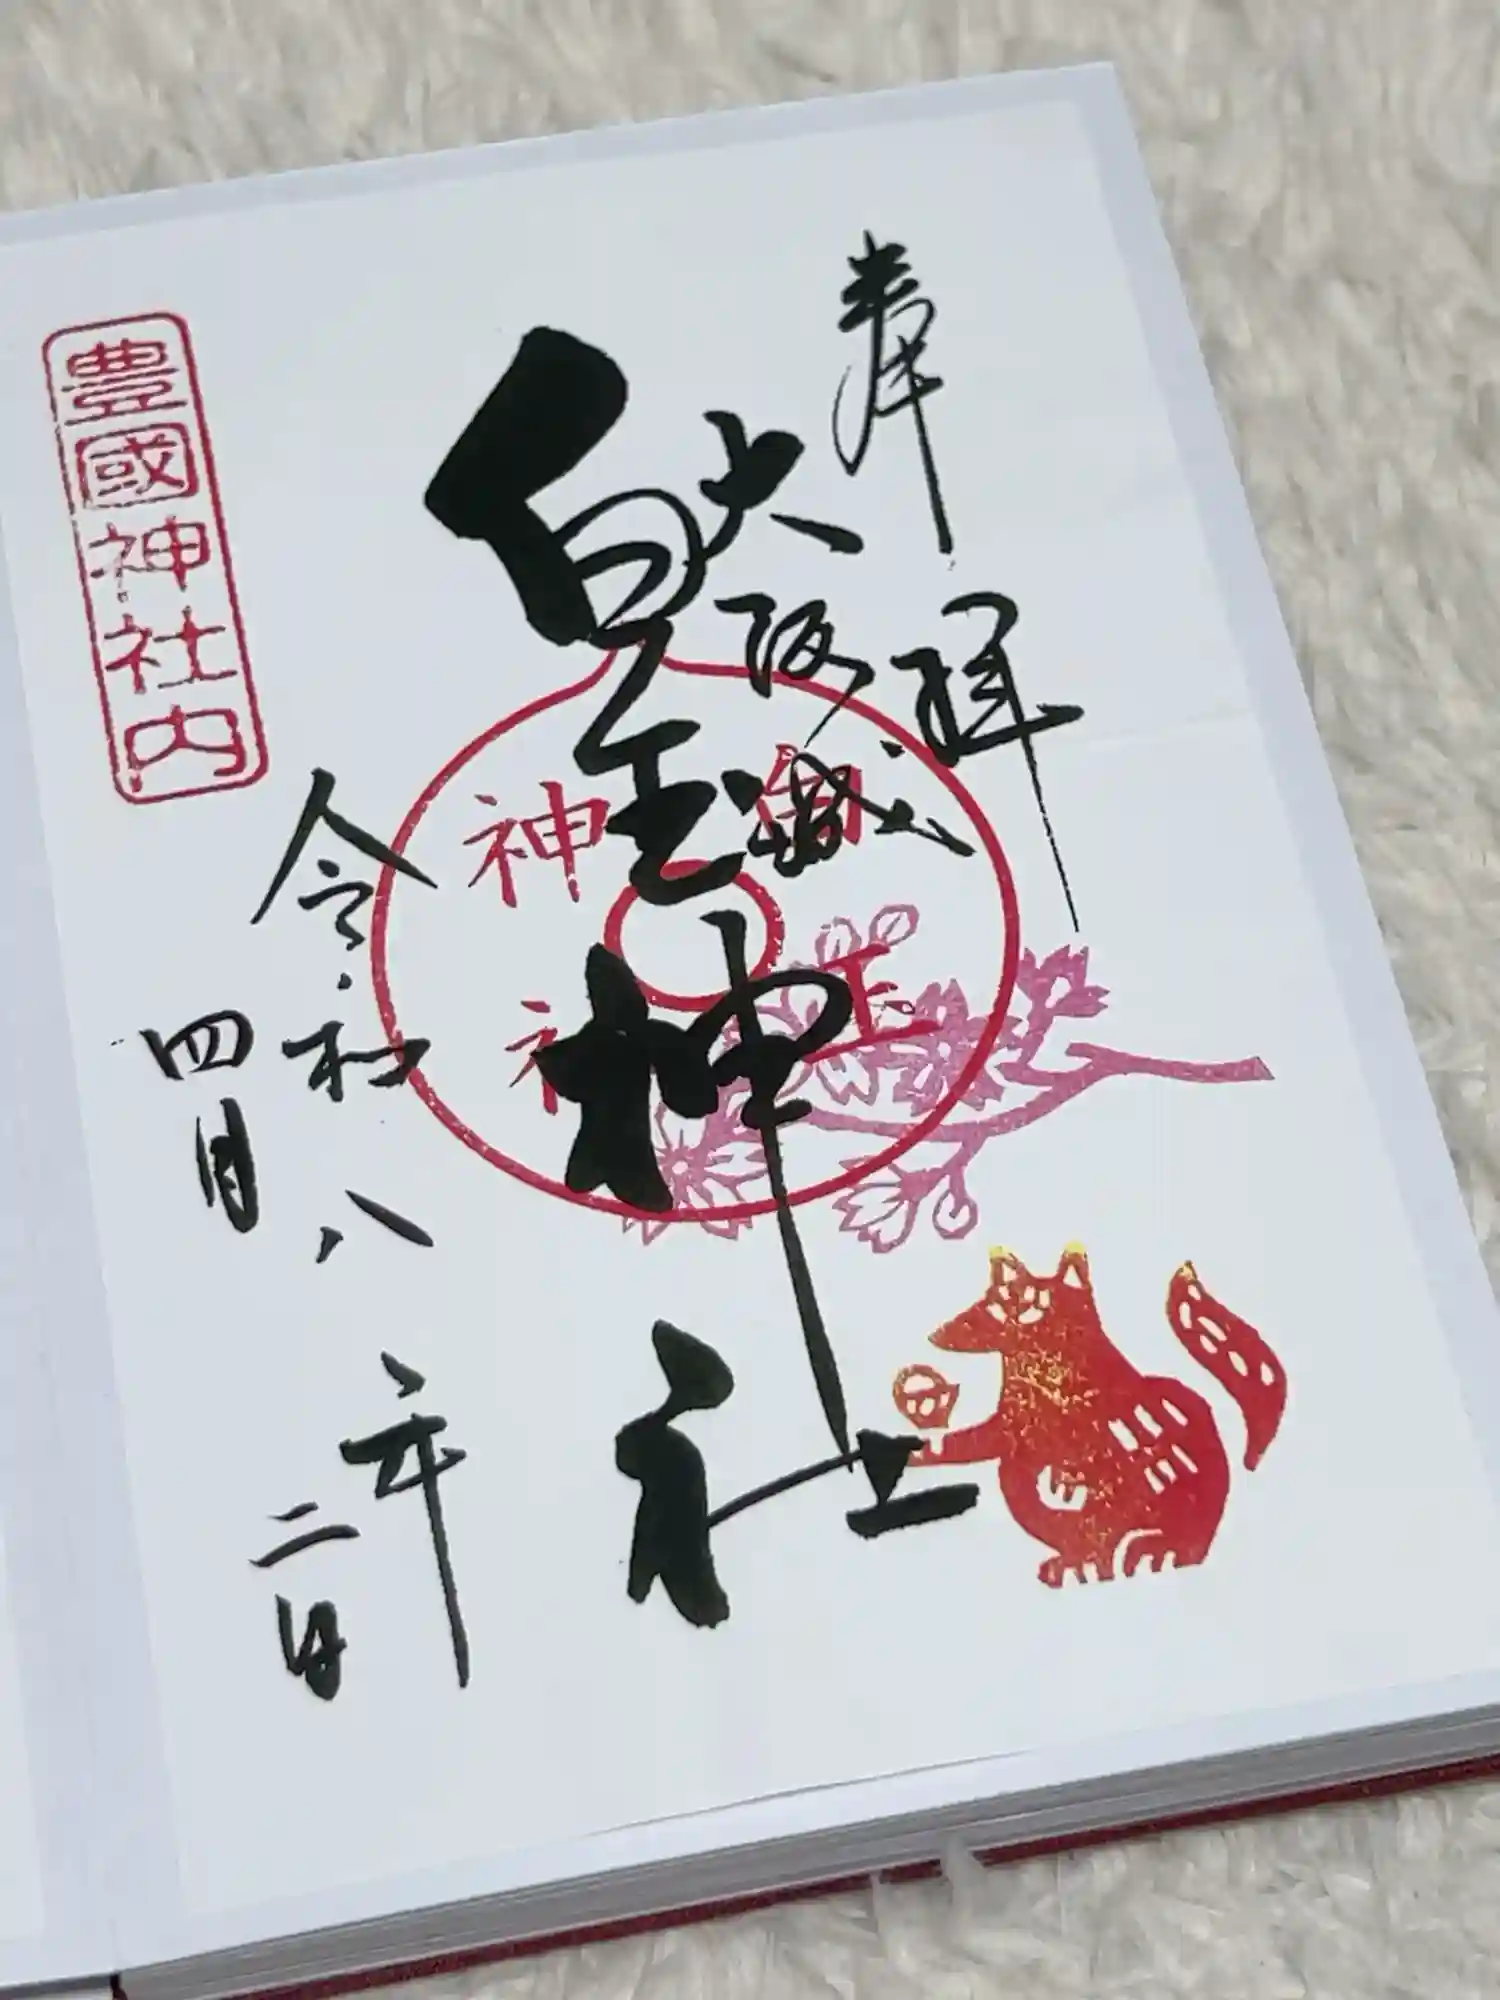 奉拝
大阪城
白玉神社
白玉神社
令和八年
四月二日
豊國神社内